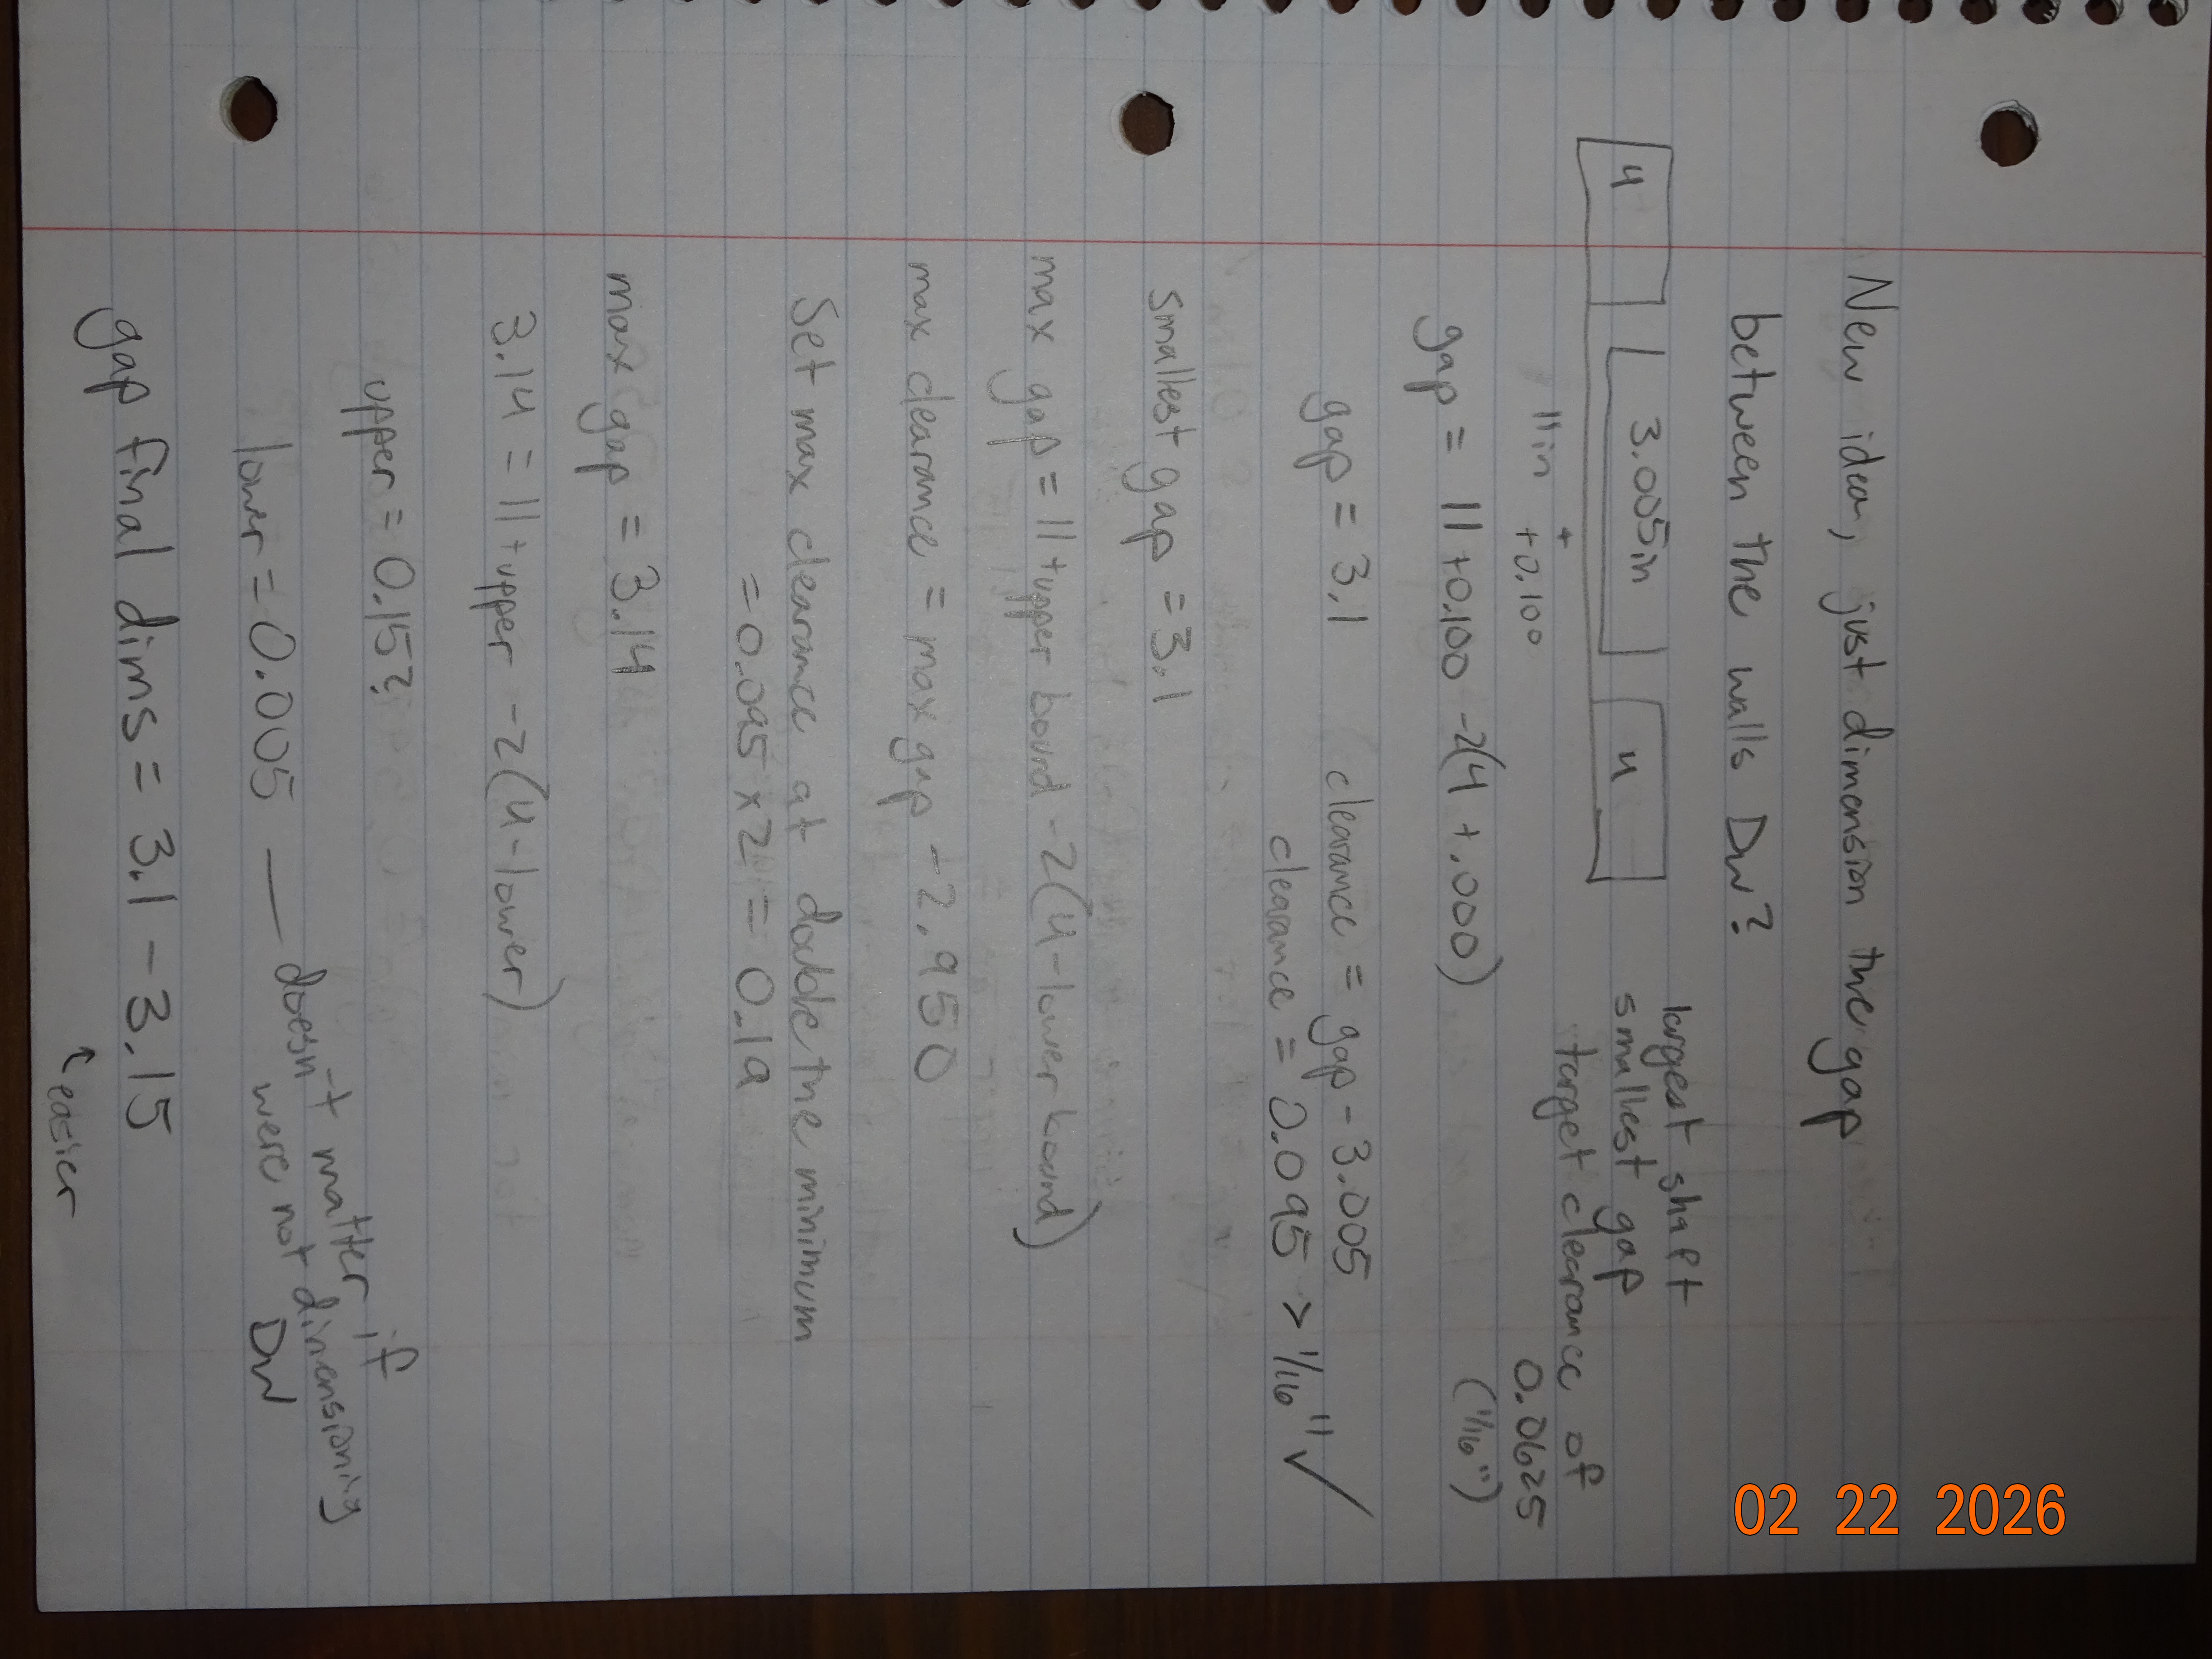 New idea, just dimension the gap
between the walls Dw?
4
3.005in
4
11in + +0.100
largest shaft
smallest gap
target clearance of
0.0625
(1/16")
gap = 11+0.100 -2(4+.000)
gap = 3.1
clearance = gap - 3.005
clearance = 0.095 > 1/16" ✓
smallest gap = 3.1
max gap = 11+upper bound -2(4-lower bound)
max clearance = max gap - 2.950
Set max clearance at double the minimum
= 0.095 x 2 = 0.19
max gap = 3.14
3.14 = 11+upper -2(4-lower)
upper = 0.15?
lower = 0.005 — doesn't matter if
were not dimensioning
Dw
gap final dims = 3.1 - 3.15
↖ easier
02 22 2026